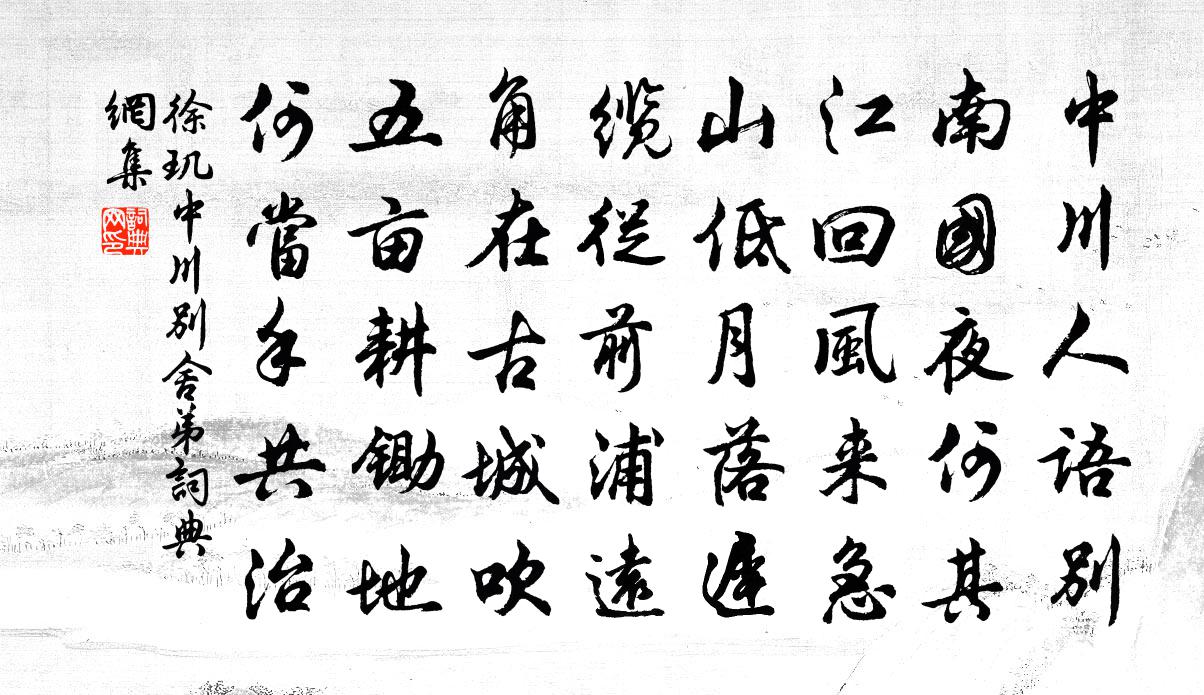 中川人語别
南國夜何其
江回風来急
山低月落遲
纜從前浦遠
角在古城吹
五亩耕鋤地
何當手共治
徐玑中川别舍弟詞典
網集
詞典
网印